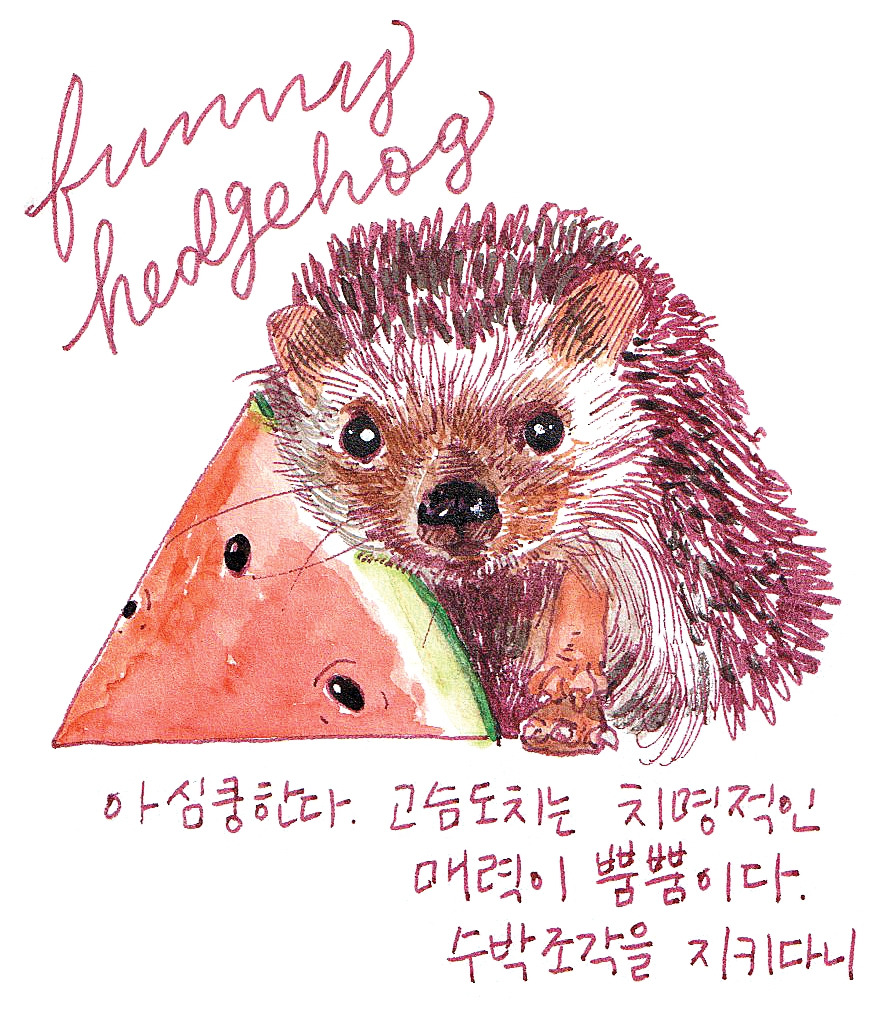 funny
hedgehog
아 심쿵한다. 고슴도치는 치명적인
매력이 뿜뿜이다.
수박조각을 지키다니